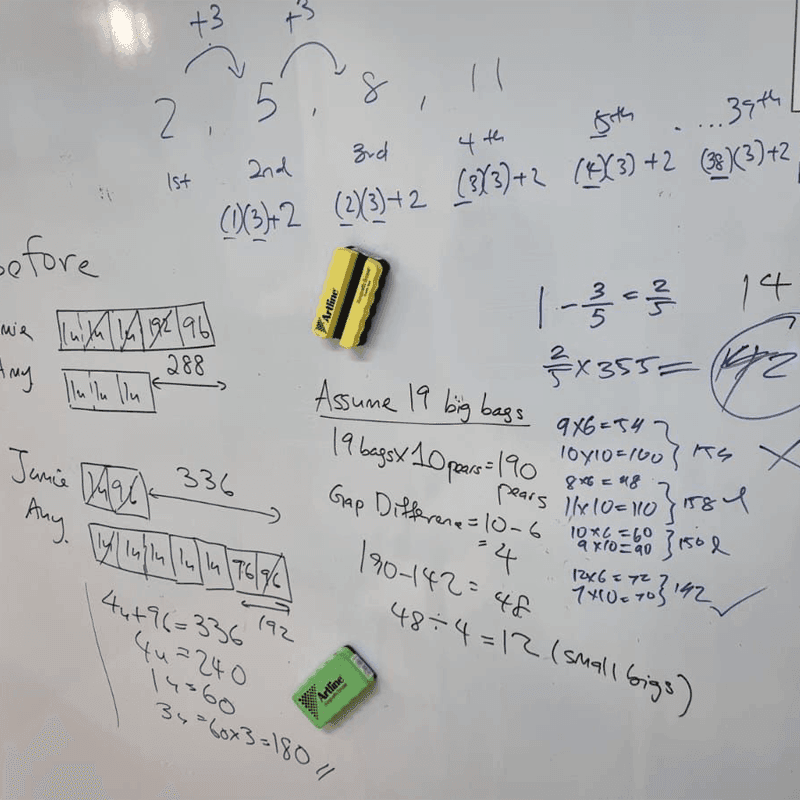 +3 +3
2, 5, 8, 11
1st 2nd 3rd 4th 5th ....39th
(1)(3)+2 (2)(3)+2 (3)(3)+2 (4)(3)+2 (38)(3)+2
before
1u 1u 1u 192 96
288
Amy 1u 1u 1u
Jamie 1u 96 336
Amy. 1u 1u 1u 1u 1u 96
192
4u+96=336
4u=240
1u=60
3u=60x3=180 //
Artline
Assume 19 big bags
19 bags x 10 pears = 190 pears
Gap Difference = 10-6
=4
190-142=48
48÷4=12 (small bigs)
Artline
1-3/5=2/5 14
2/5x355=
9x6=54
10x10=100 } 154
8x6=48
11x10=110 } 158
10x6=60
9x10=90 } 150
12x6=72
7x10=70 } 142 ✓